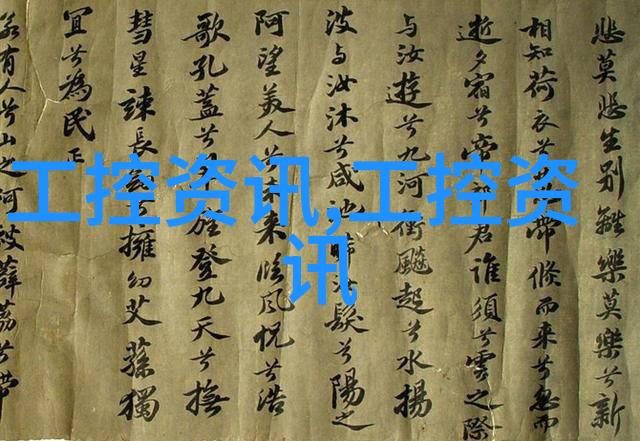 工控资讯,工控资
讯
悲莫悲生别離樂莫樂兮新
相知荷衣兮帶倐而来兮忽而
逝夕宿兮帝君誰須兮雲之際
与汝遊兮九河衝飈起兮水揚
波与汝沐兮咸池晞汝髮兮陽之
阿望美人兮未来临风怳兮浩
歌孔蓋兮旌登九天兮撫
彗星竦長擁幼艾蓀獨
宜兮為民正
若有人兮山之阿被薜荔兮帶